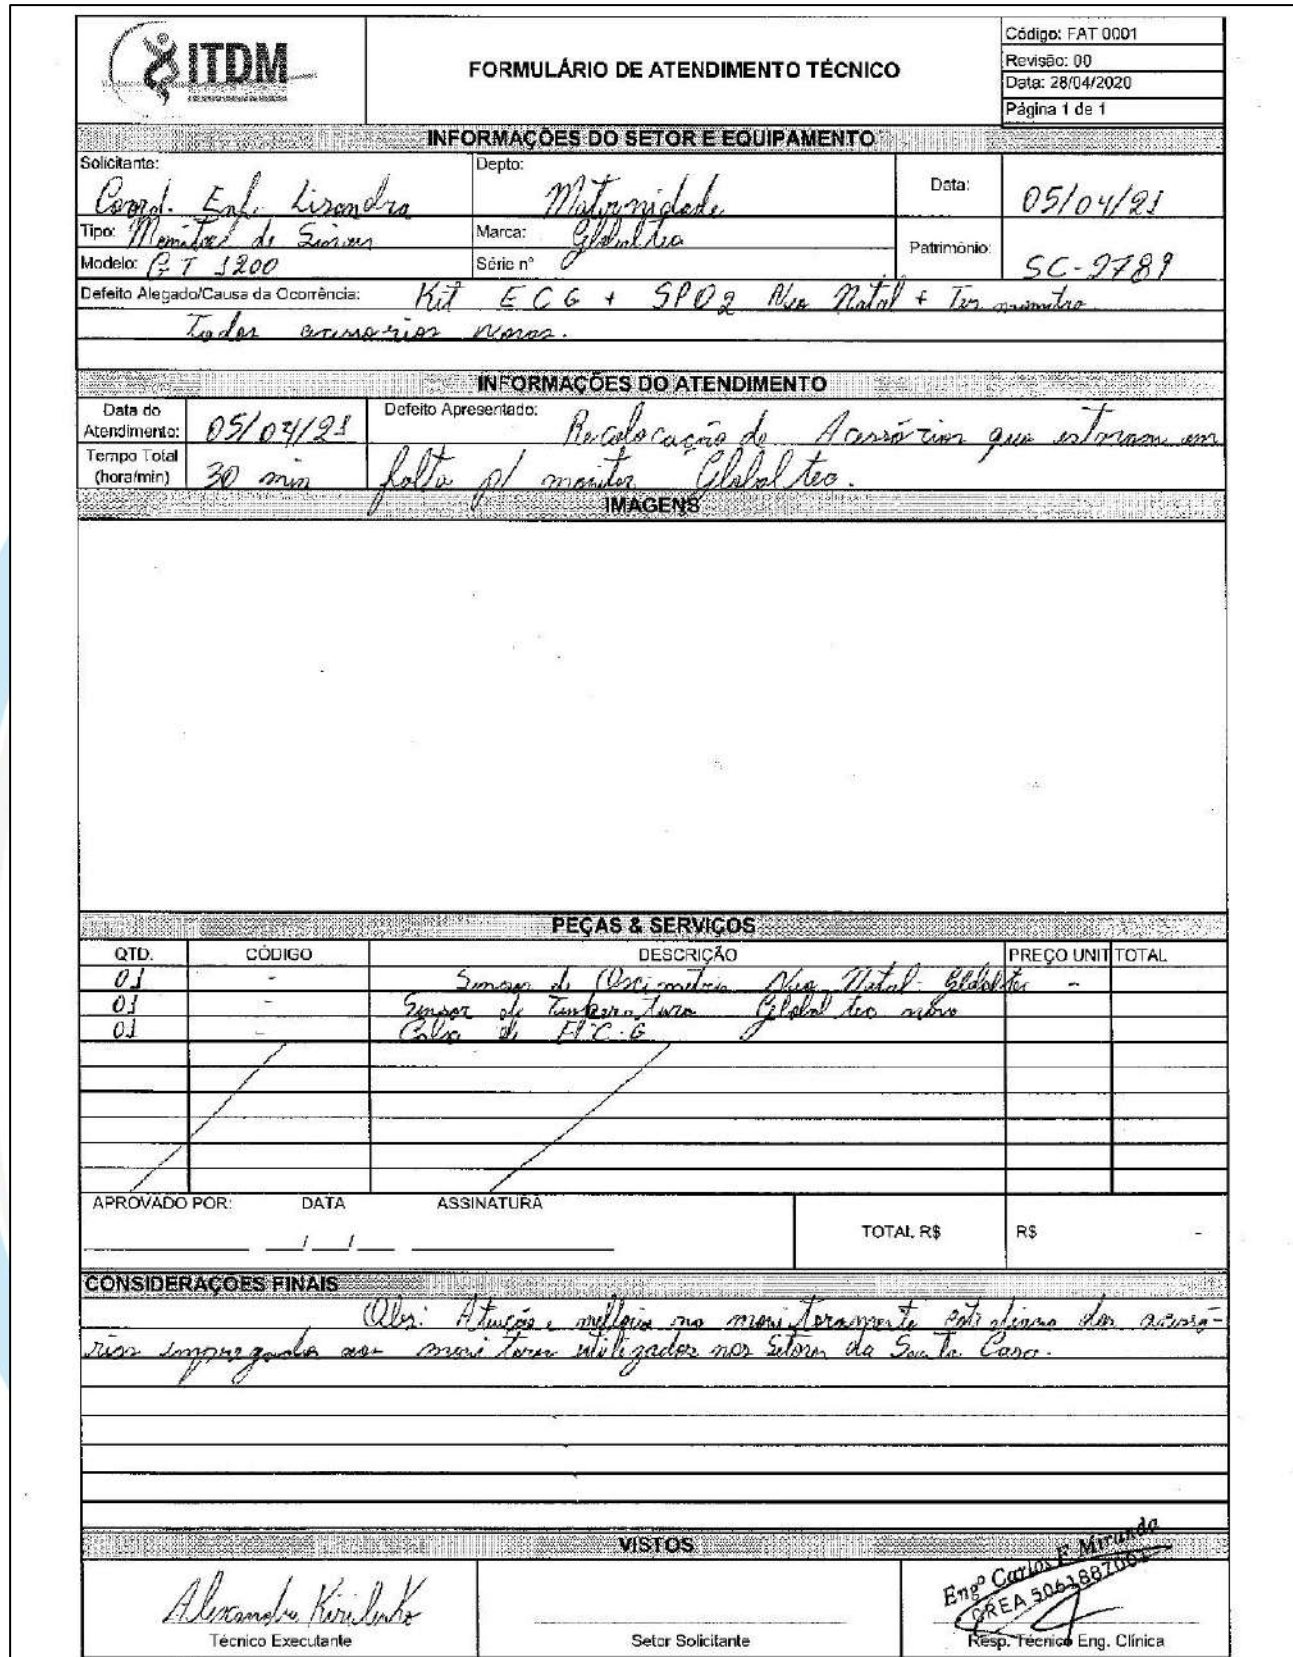 ITDM
FORMULÁRIO DE ATENDIMENTO TÉCNICO
Código: FAT 0001
Revisão: 00
Data: 28/04/2020
Página 1 de 1
INFORMAÇÕES DO SETOR E EQUIPAMENTO
Solicitante: Coord. Enf. Lisandra
Depto: Maternidade
Data: 05/04/21
Tipo: Monitor de Sinais
Marca: Globaltec
Patrimônio: SC-2789
Modelo: GT 1200
Série nº
Defeito Alegado/Causa da Ocorrência: Kit ECG + SPO2 Neo Natal + Termometro
Todos acessorios novos.
INFORMAÇÕES DO ATENDIMENTO
Data do Atendimento: 05/04/21
Tempo Total (hora/min) 30 min
Defeito Apresentado: Recolocação de Acessórios que estavam em
falta p/ monitor Globaltec.
IMAGENS
PEÇAS & SERVIÇOS
QTD. CÓDIGO DESCRIÇÃO PREÇO UNIT TOTAL
01 - Sensor de Oximetria Neo Natal - Globaltec -
01 - Sensor de Temperatura Globaltec novo
01 - Cabo de ECG
APROVADO POR: DATA ASSINATURA
___ / ___ / ___
TOTAL R$ R$ -
CONSIDERAÇÕES FINAIS
Obs: Atenção e melhoria no monitoramento cotidiano dos acessó-
rios empregados aos monitores utilizados nos Setores da Santa Casa.
VISTOS
Alexandre Kirilenko
Técnico Executante
Setor Solicitante
Engº Carlos F. Miranda
CREA 5061887001
Resp. Técnico Eng. Clínica